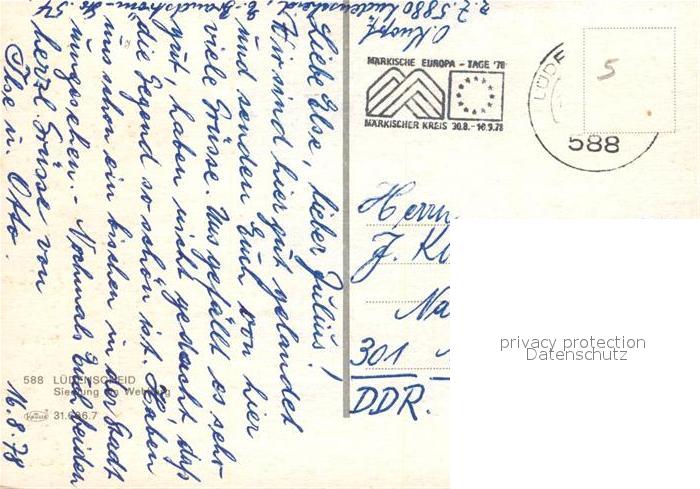 O. Knopf,
z. Z. 5880 Lüdenscheid, E. Brandström-Str. 54
Liebe Else, lieber Julius!
Wir sind hier gut gelandet
und senden Euch von hier
viele Grüsse. Uns gefällt es sehr
gut, haben nicht gedacht, daß
die Gegend so schön ist. Haben
uns schon ein bischen in der Stadt
umgesehen. - Nochmals Euch beiden
herzl. Grüsse von
Ilse u. Otto.
16.8.78
MÄRKISCHE EUROPA - TAGE '78
MÄRKISCHER KREIS 30.8.-10.9.78
LÜDE
588
5
Herrn
J. K
Na
301
DDR.
privacy protection
Datenschutz
588 LÜDENSCHEID
Siedlung am Wehberg
Krüger
31.686.7